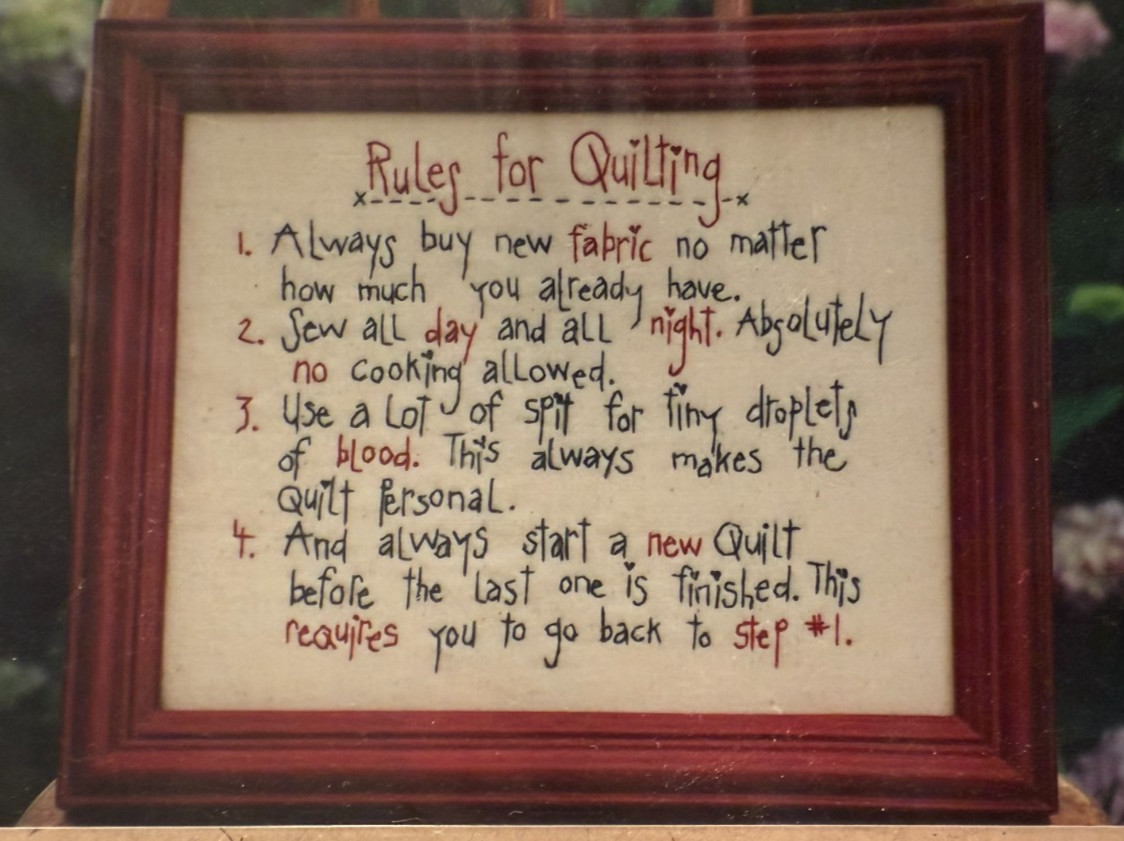 Rules for Quilting
1. Always buy new fabric no matter
how much you already have.
2. Sew all day and all night. Absolutely
no cooking allowed.
3. Use a Lot of spit for tiny droplets
of blood. This always makes the
Quilt Personal.
4. And always start a new Quilt
before the last one is finished. This
requires you to go back to step #1.